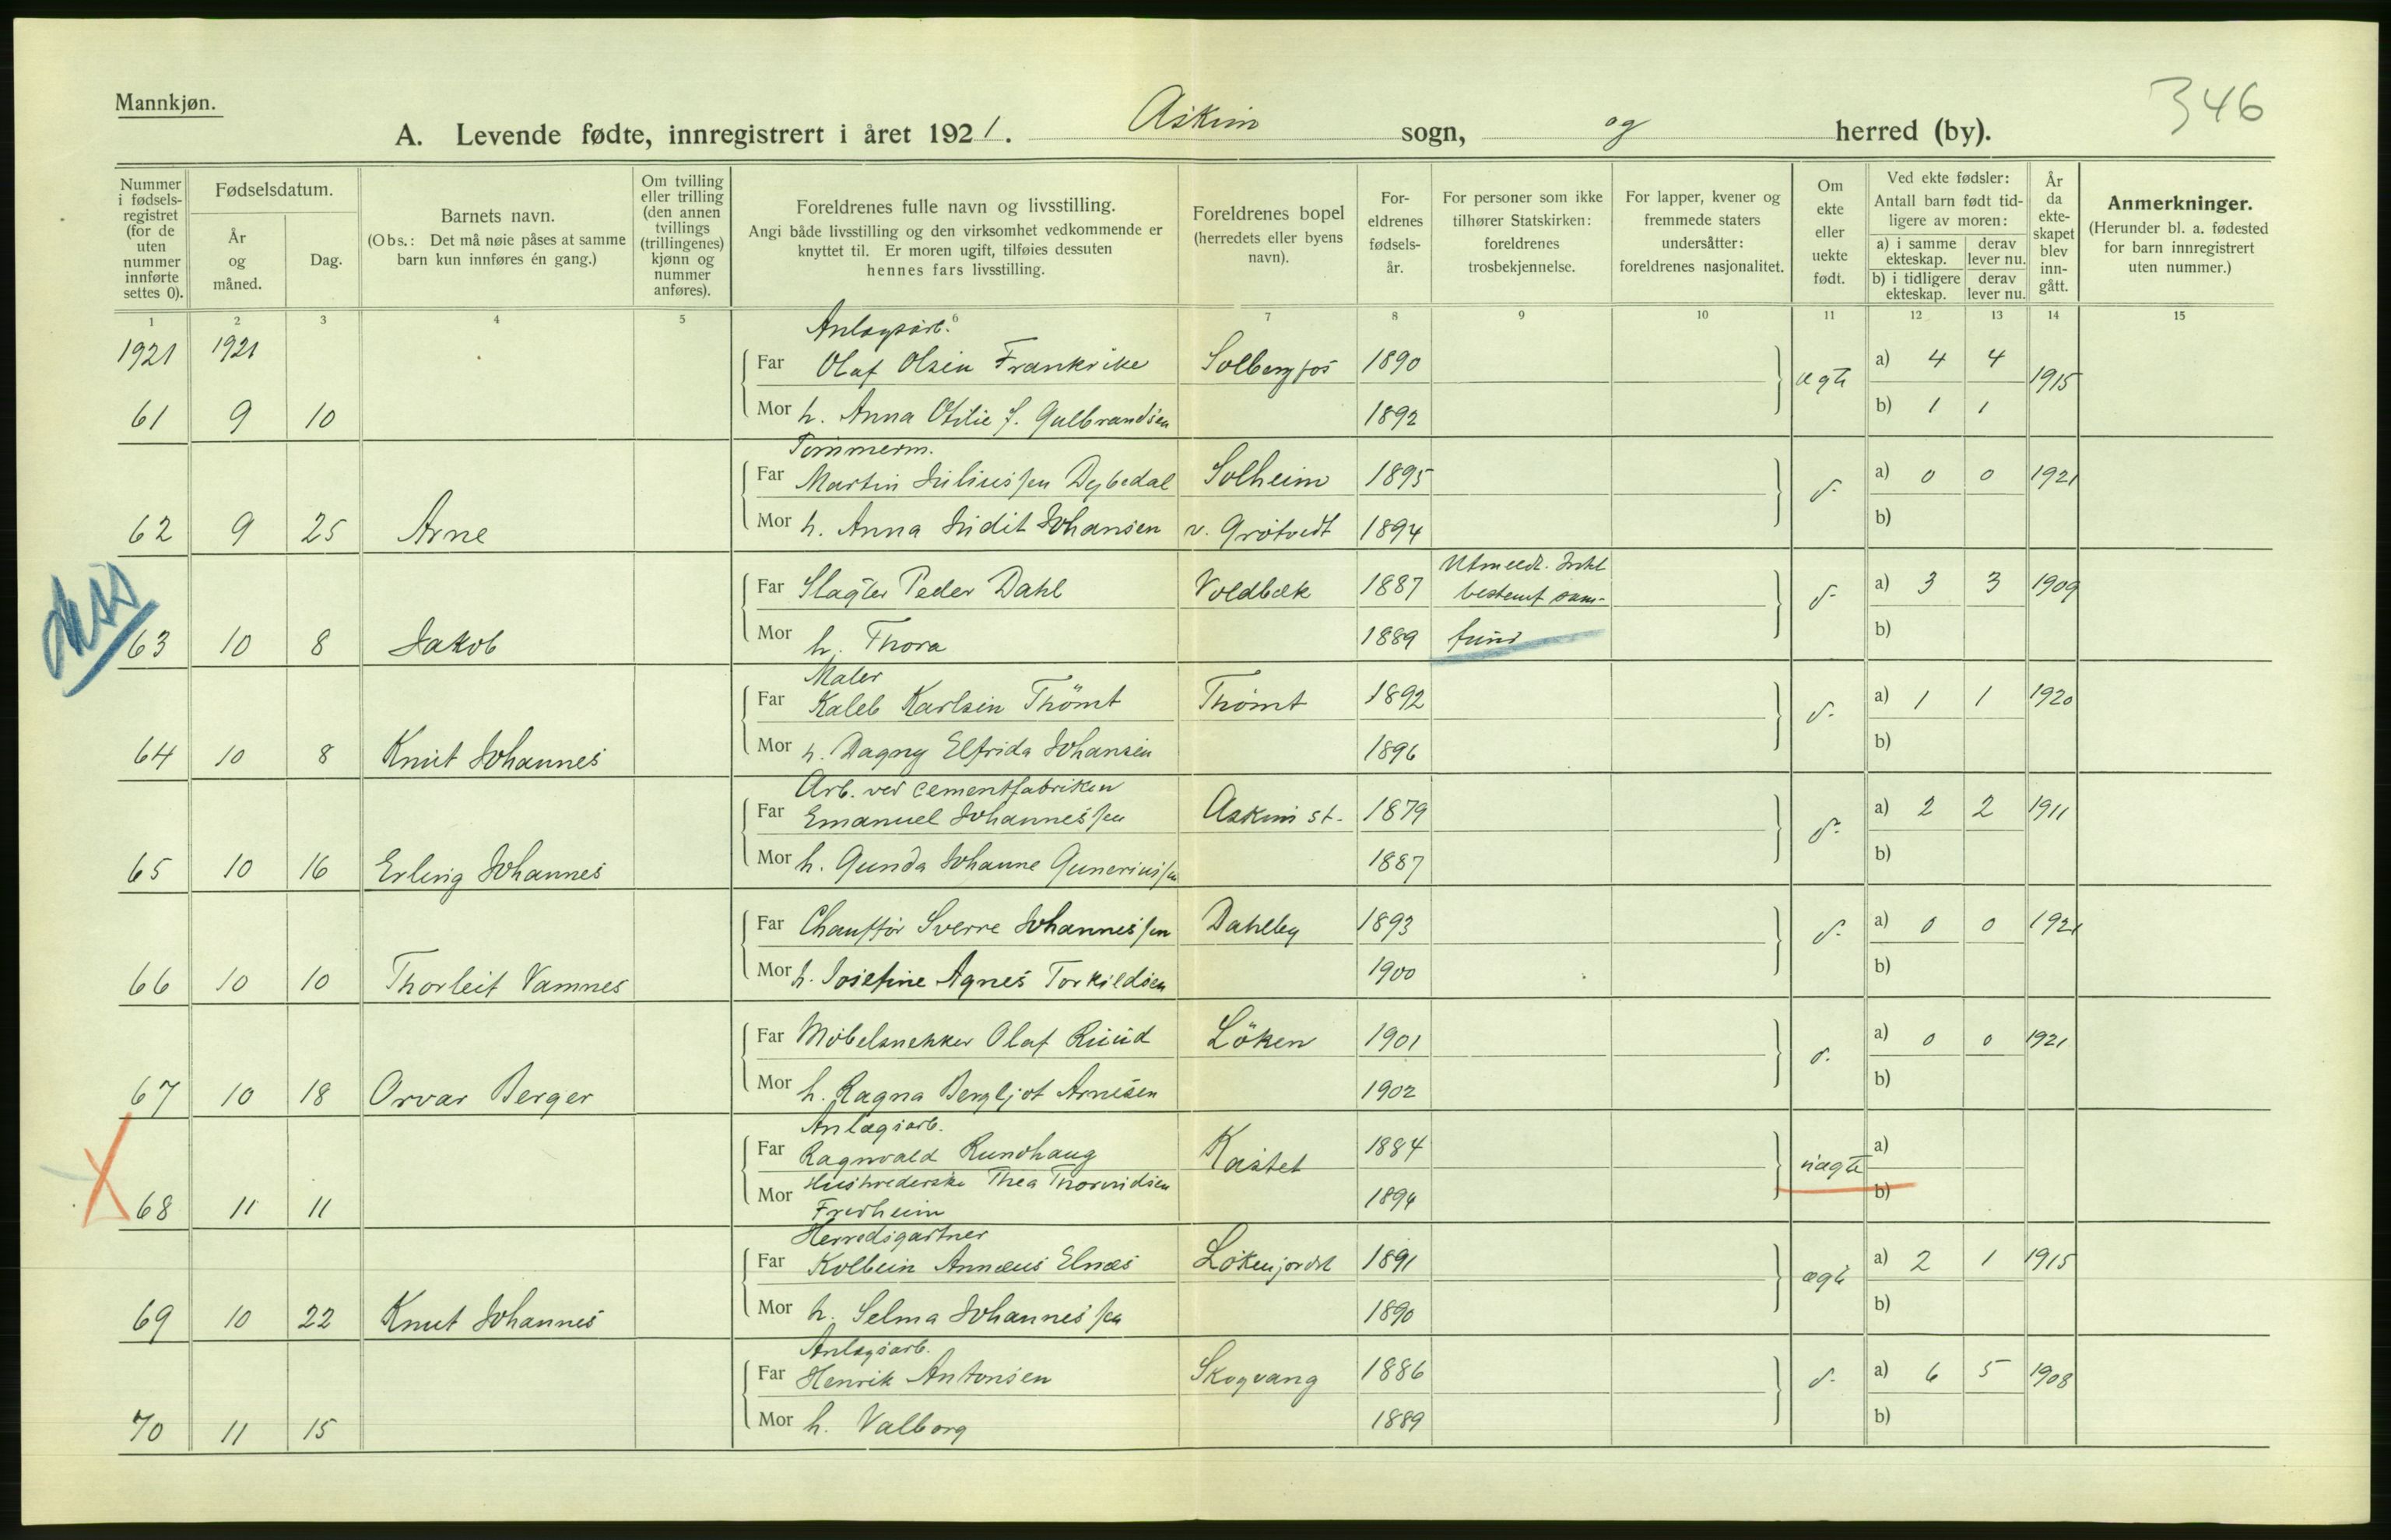 Mannkjøn.
346
A. Levende fødte, innregistrert i året 1921. Askim sogn, og herred (by).
Nummer i fødsels-registret (for de uten nummer innførte settes 0).
Fødselsdatum.
År og måned.
Dag.
Barnets navn.
(Obs.: Det må nøie påses at samme barn kun innføres én gang.)
Om tvilling eller trilling (den annen tvillings (trillingenes) kjønn og nummer anføres).
Foreldrenes fulle navn og livsstilling.
Angi både livsstilling og den virksomhet vedkommende er knyttet til. Er moren ugift, tilføies dessuten hennes fars livsstilling.
Foreldrenes bopel (herredets eller byens navn).
For-eldrenes fødsels-år.
For personer som ikke tilhører Statskirken: foreldrenes trosbekjennelse.
For lapper, kvener og fremmede staters undersåtter: foreldrenes nasjonalitet.
Om ekte eller uekte født.
Ved ekte fødsler: Antall barn født tid-ligere av moren:
a) i samme ekteskap. derav lever nu.
b) i tidligere ekteskap. derav lever nu.
År da ekte-skapet blev inn-gått.
Anmerkninger.
(Herunder bl. a. fødested for barn innregistrert uten nummer.)
1 2 3 4 5 6 7 8 9 10 11 12 13 14 15
1921 1921
Anlægsarb.
Far Olaf Olsen Frankrike Solbergfos 1890 ægte a) 4 4 1915
61 9 10 Mor h. Anna Otilie f. Gulbrandsen 1892 b) 1 1
Tømmerm.
Far Martin Juliussen Dybedal Solheim 1895 d- a) 0 0 1921
62 9 25 Arne Mor h. Anna Judit Johansen v. Grøtvedt 1894 b)
Far Slagter Peder Dahl Voldbæk 1887 Utmeldt. Intet bestemt sam- d- a) 3 3 1909
63 10 8 Jakob Mor h. Thora 1889 fund b)
Maler
Far Kaleb Karlsen Thömt Thömt 1892 d- a) 1 1 1920
64 10 8 Knut Johannes Mor h. Dagny Elfrida Johansen 1896 b)
Arb. ved cementfabriken
Far Emanuel Johannessen Askim st. 1879 d- a) 2 2 1911
65 10 16 Erling Johannes Mor h. Gunda Johanne Guneriussen 1887 b)
Far Chauffør Sverre Johannessen Dahleby 1893 d- a) 0 0 1921
66 10 10 Thorleif Vamnes Mor h. Josefine Agnes Torkildsen 1900 b)
Far Møbelsnekker Olaf Ruud Löken 1901 d. a) 0 0 1921
67 10 18 Orvar Berger Mor h. Ragna Bergljot Arnesen 1902 b)
Anlægsarb.
Far Ragnvald Rundhaug Kastet 1884 uægte a)
68 11 11 Mor Thea Fredheim 1894 b)
Herredsgartner
Far Kolbein Annæus Elnæs Lökenjordet 1891 ægte a) 2 1 1915
69 10 22 Knut Johannes Mor h. Selma Johannessen 1890 b)
Anlægsarb.
Far Henrik Antonsen Skogvang 1886 d- a) 6 5 1908
70 11 15 Mor h. Valborg 1889 b)